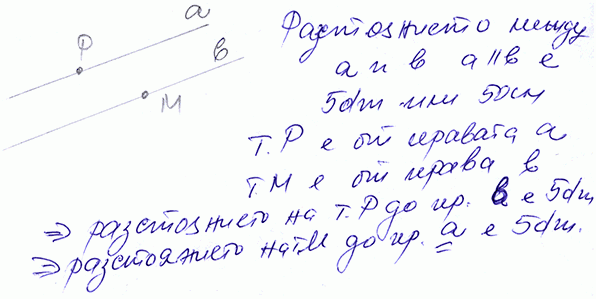 a
P
в
M
Разтоянието между
a и в a || в е
5dm или 50см
т. P е от правата a
т M е от права в
⇒ разстоянието на т. P до пр. в е 5dm
⇒ разстоянието на т M до пр. a е 5dm.